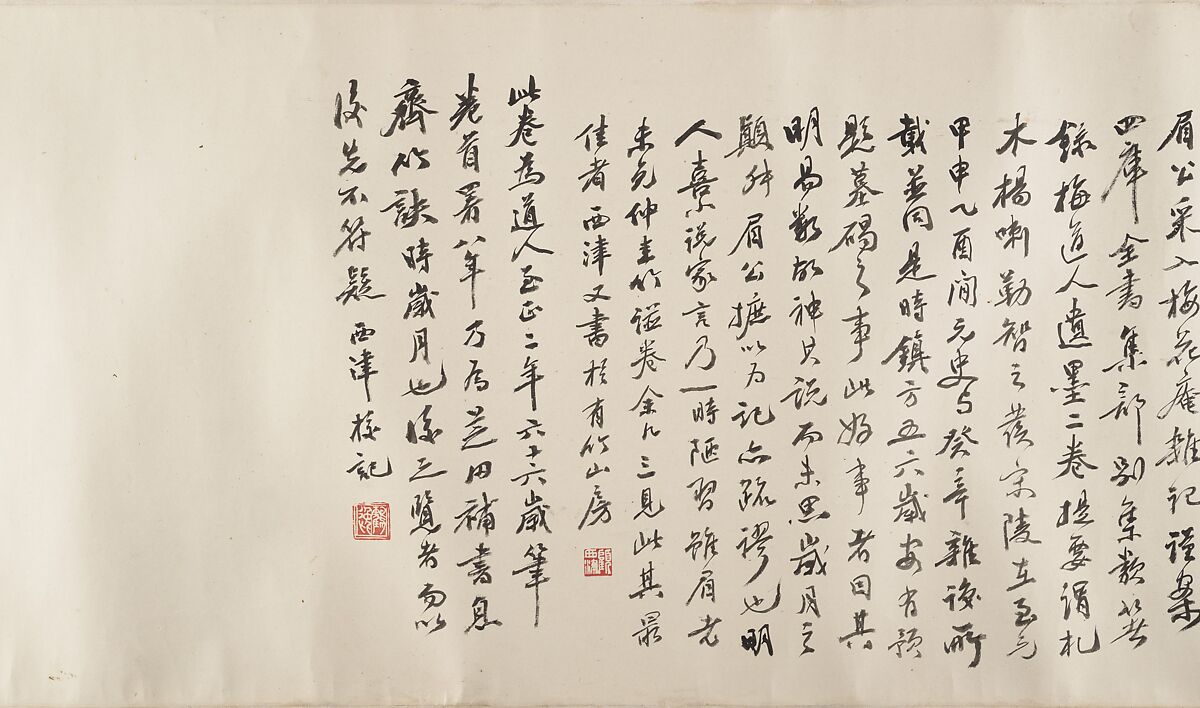 眉公采入梅花庵雜記謹案
四庫全書集部別集類簽
錄梅道人遺墨二卷提要謂札
木楊喇勒智之發宋陵在至元
甲申乙酉間元史與癸辛雜識所
載並同是時鎮方五六歲安有預
題墓碣之事此好事者因其
明易數故神其說而未思歲月之
顛舛眉公摭以為記亦疏謬也明
人喜小說家言乃一時陋習雖眉老
未免仲圭竹譜卷余凡三見此其最
佳者西津又書於有竹山房
此卷為道人至正二年六十六歲筆
卷首署八年方為芝田補書息
齋竹訣時歲月也後之覽者勿以
後先不符疑西津校記
顧西津
鶴逸